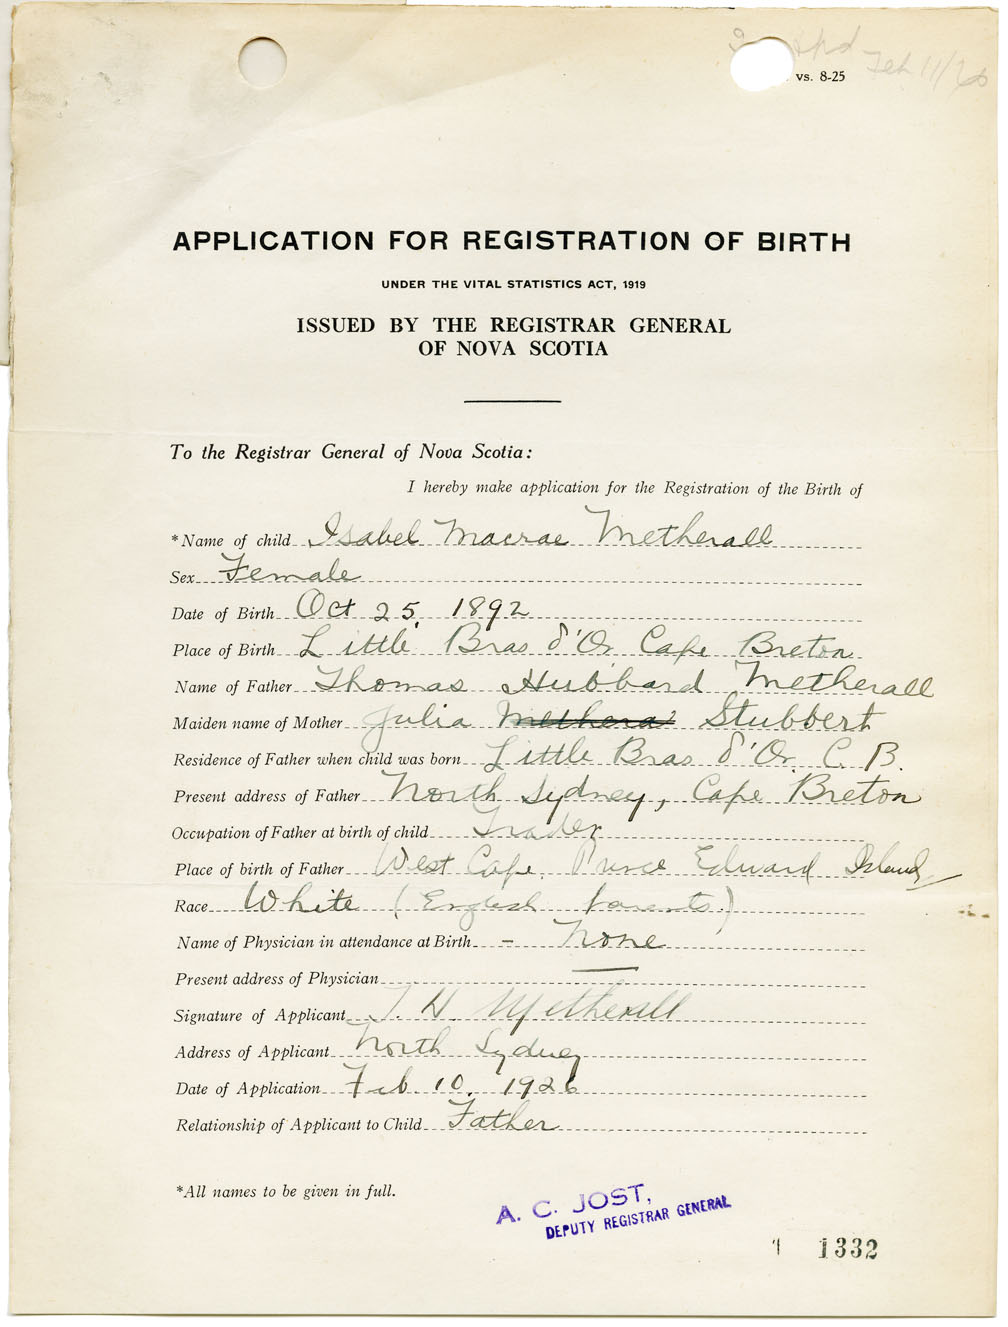 Feb 11/26
vs. 8-25
APPLICATION FOR REGISTRATION OF BIRTH
UNDER THE VITAL STATISTICS ACT, 1919
ISSUED BY THE REGISTRAR GENERAL
OF NOVA SCOTIA
To the Registrar General of Nova Scotia:
I hereby make application for the Registration of the Birth of
*Name of child Isabel Macrae Metherall
Sex Female
Date of Birth Oct 25, 1892
Place of Birth Little Bras d'Or Cape Breton
Name of Father Thomas Hubbard Metherall
Maiden name of Mother Julia Stubbert
Residence of Father when child was born Little Bras d'Or, C. B.
Present address of Father North Sydney, Cape Breton
Occupation of Father at birth of child Trader
Place of birth of Father West Cape, Prince Edward Island
Race White (English parents)
Name of Physician in attendance at Birth - None
Present address of Physician
Signature of Applicant T. H. Metherall
Address of Applicant North Sydney
Date of Application Feb. 10, 1926
Relationship of Applicant to Child Father
*All names to be given in full.
A. C. JOST,
DEPUTY REGISTRAR GENERAL
1332